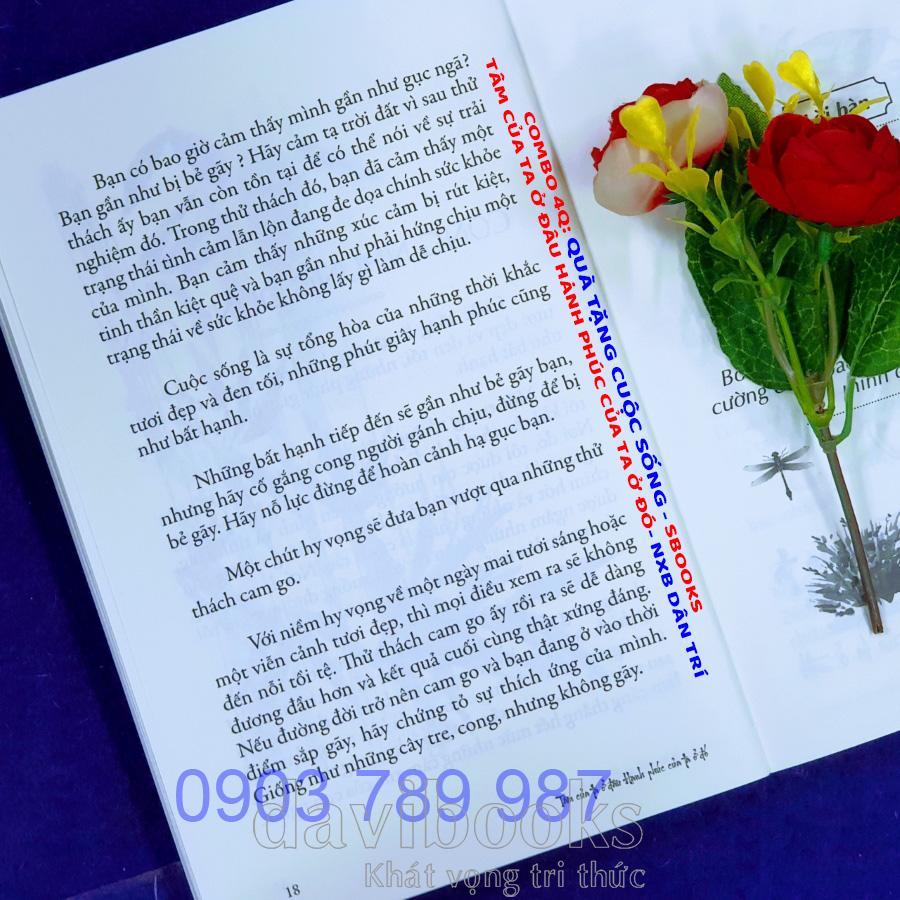 Bạn có bao giờ cảm thấy mình gần như gục ngã?
Bạn gần như bị bẻ gãy ? Hãy cảm tạ trời đất vì sau thử
thách ấy bạn vẫn còn tồn tại để có thể nói về sự trải
nghiệm đó. Trong thử thách đó, bạn đã cảm thấy một
trạng thái tình cảm lẫn lộn đang đe dọa chính sức khỏe
của mình. Bạn cảm thấy những xúc cảm bị rút kiệt,
tinh thần kiệt quệ và bạn gần như phải hứng chịu một
trạng thái về sức khỏe không lấy gì làm dễ chịu.
Cuộc sống là sự tổng hòa của những thời khắc
tươi đẹp và đen tối, những phút giây hạnh phúc cũng
như bất hạnh.
Những bất hạnh tiếp đến sẽ gần như bẻ gãy bạn,
nhưng hãy cố gắng cong người gánh chịu, đừng để bị
bẻ gãy. Hãy nỗ lực đừng để hoàn cảnh hạ gục bạn.
Một chút hy vọng sẽ đưa bạn vượt qua những thử
thách cam go.
Với niềm hy vọng về một ngày mai tươi sáng hoặc
một viễn cảnh tươi đẹp, thì mọi điều xem ra sẽ không
đến nỗi tồi tệ. Thử thách cam go ấy rồi ra sẽ dễ dàng
đương đầu hơn và kết quả cuối cùng thật xứng đáng.
Nếu đường đời trở nên cam go và bạn đang ở vào thời
điểm sắp gãy, hãy chứng tỏ sự thích ứng của mình.
Giống như những cây tre, cong, nhưng không gãy.
Tâm của ta ở đâu Hạnh phúc của ta ở đó
18
COMBO 4Q: QUÀ TẶNG CUỘC SỐNG - SBOOKS
TÂM CỦA TA Ở ĐÂU HẠNH PHÚC CỦA TA Ở ĐÓ- NXB DÂN TRÍ
hàn
cường
0903 789 987
davibooks
Khát vọng tri thức